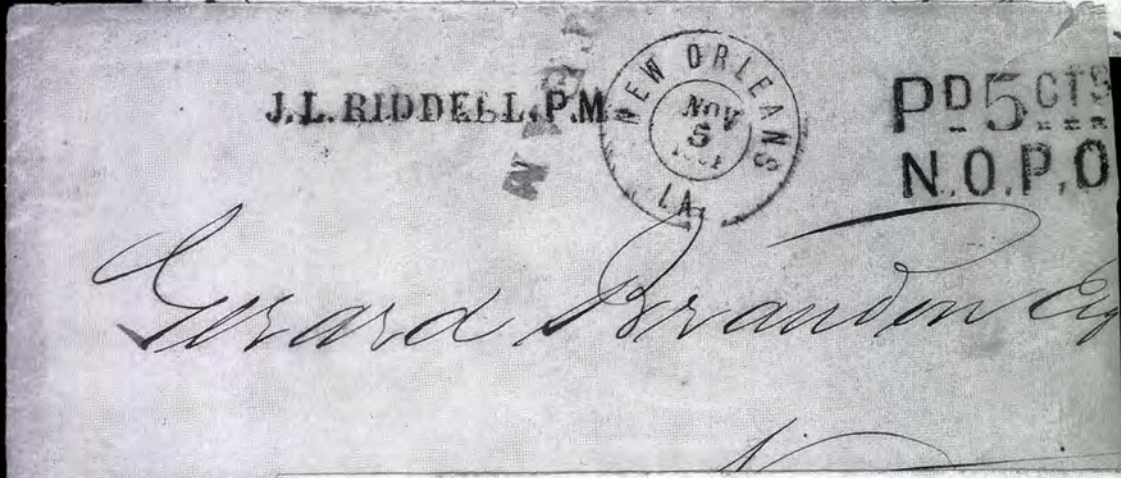 J.L. RIDDELL, P.M
NEW ORLEANS
NOV
5
LA.
PD 5 CTS
N.O.P.O
Gerard Brandon Esq